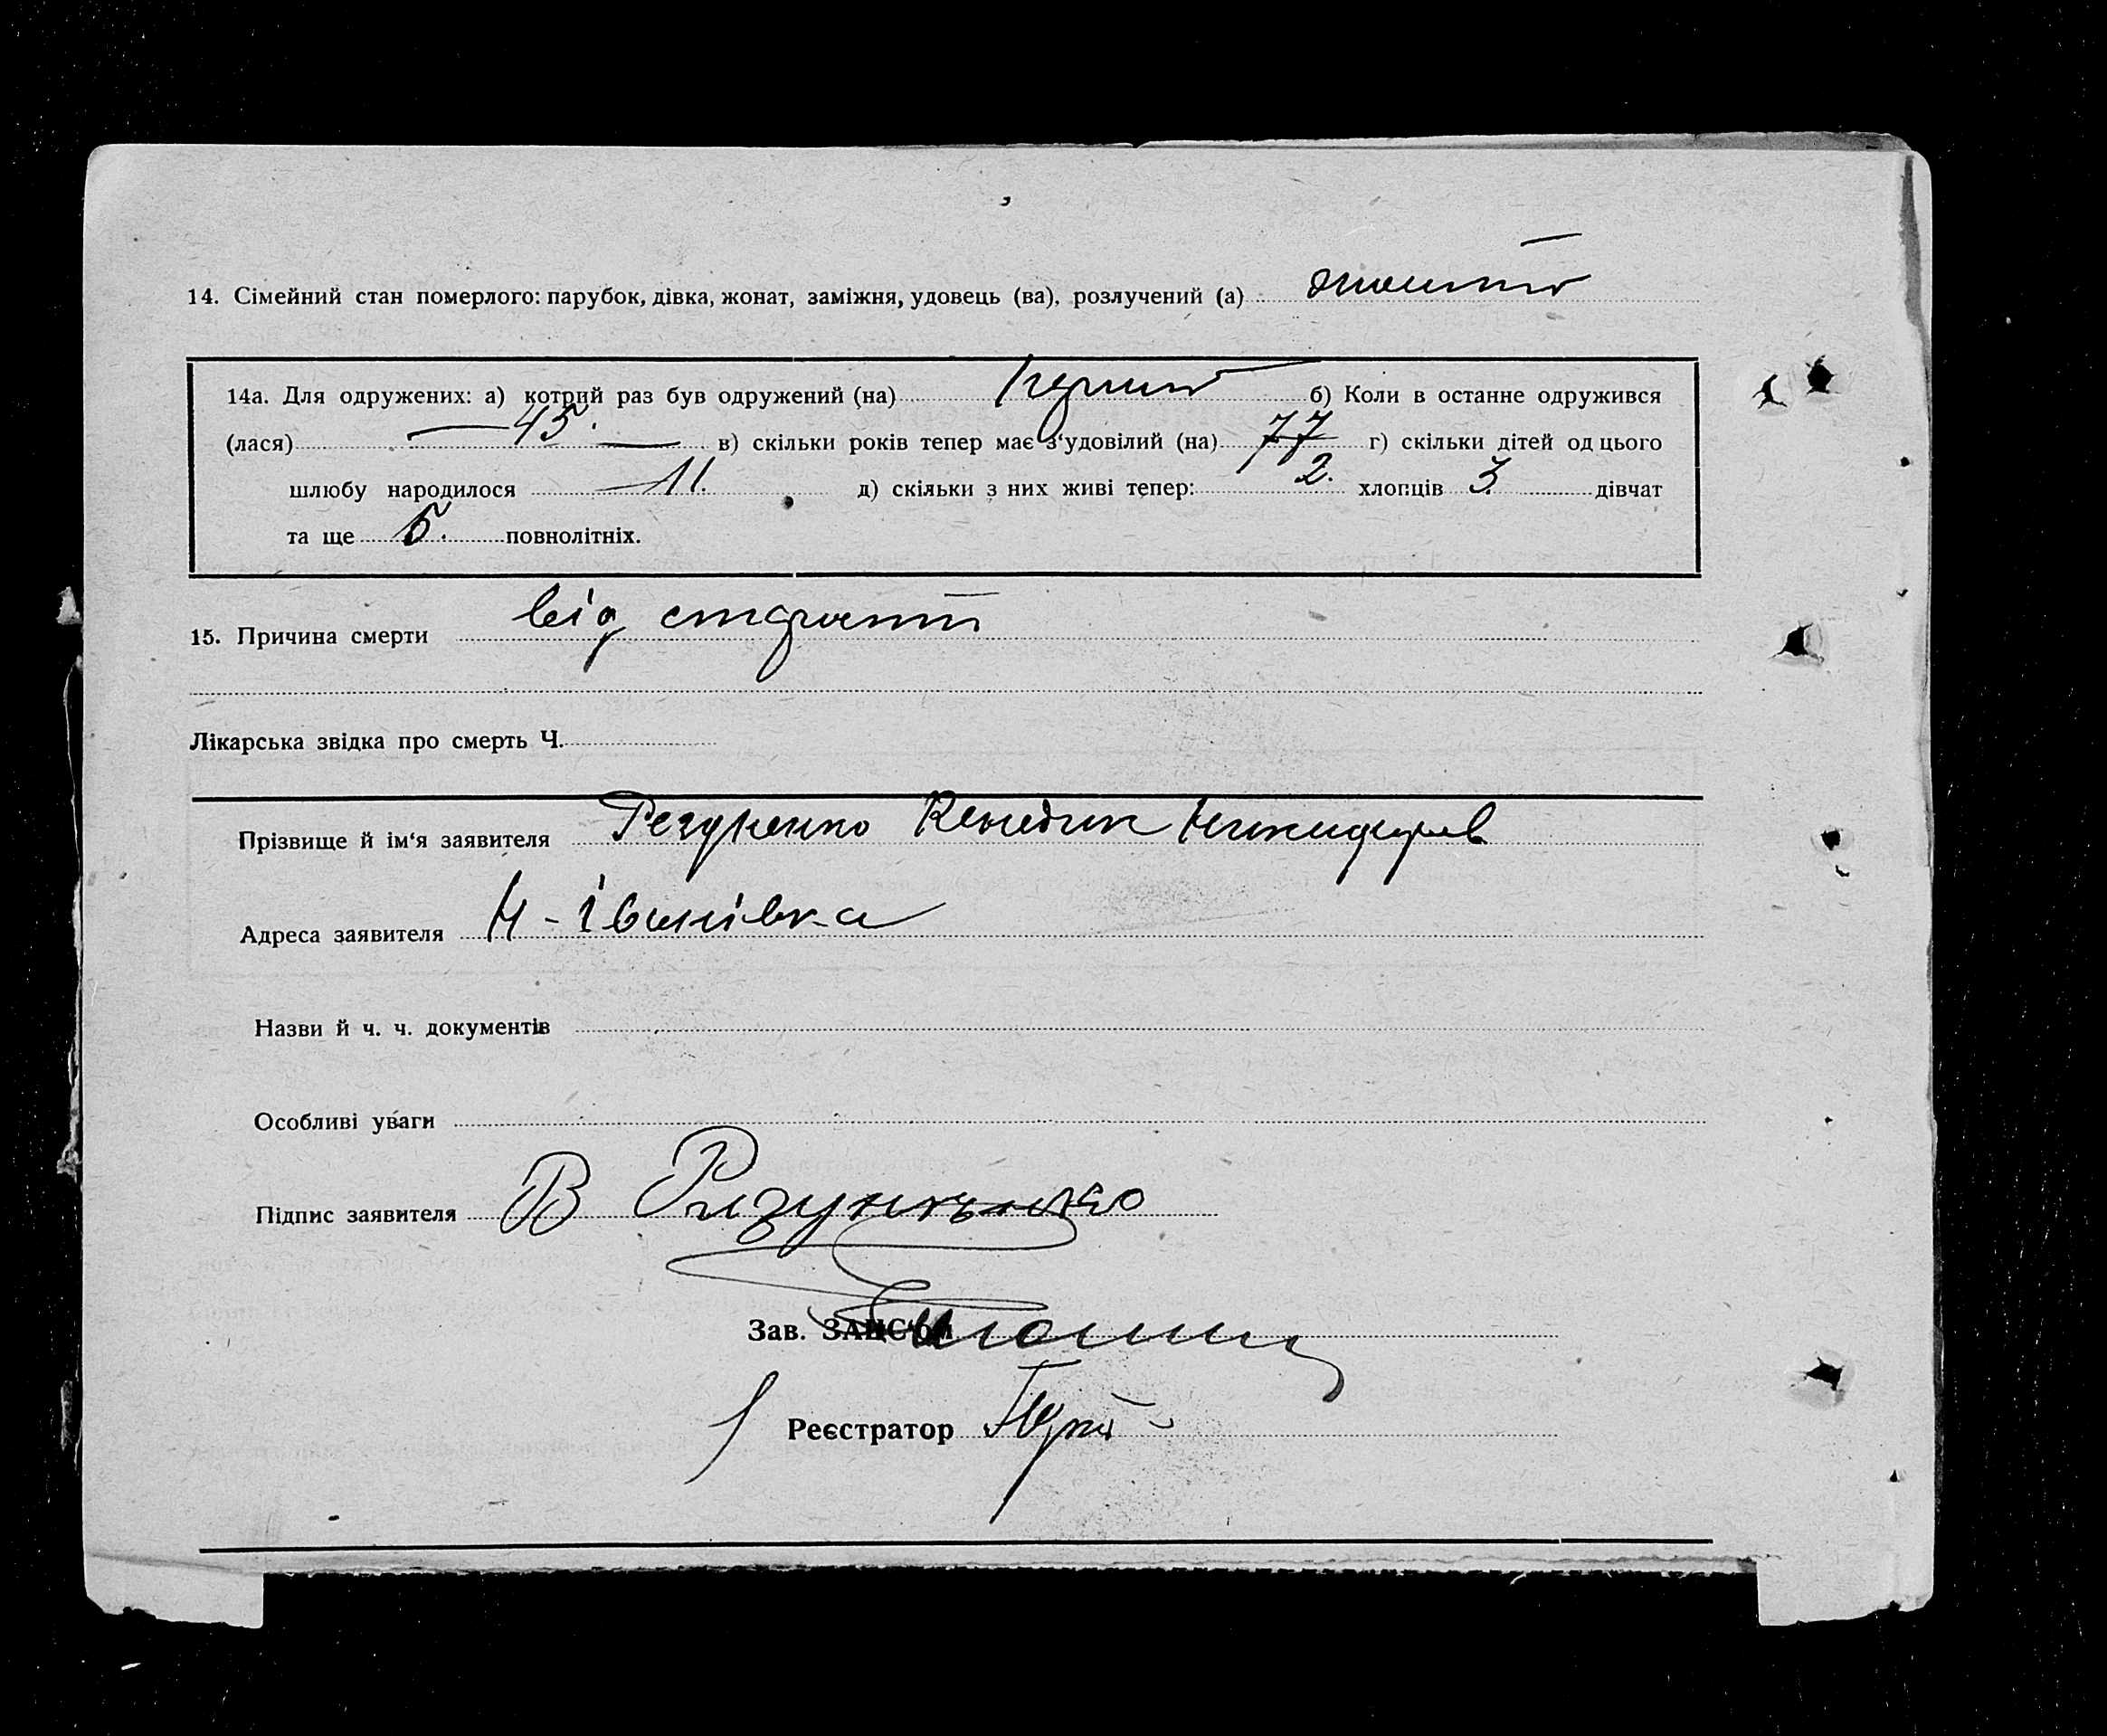 14. Сімейний стан померлого: парубок, дівка, жонат, заміжня, удовець (ва), розлучений (а)
14а. Для одружених: а) котрий раз був одружений (на) б) Коли в останне одружився
(лася) 45. в) скільки років тепер має з'удовілий (на) 77 г) скільки дітей од цього
шлюбу народилося 11. д) скільки з них живі тепер: 2. хлопців 3. дівчат
та ще 5. повнолітніх.
15. Причина смерти від старости
Лікарська звідка про смерть Ч.
Прізвище й ім'я заявителя
Адреса заявителя Н-Іванівка
Назви й ч. ч. документів
Особливі уваги
Підпис заявителя В
Зав. ЗАЦС'ом
Реєстратор